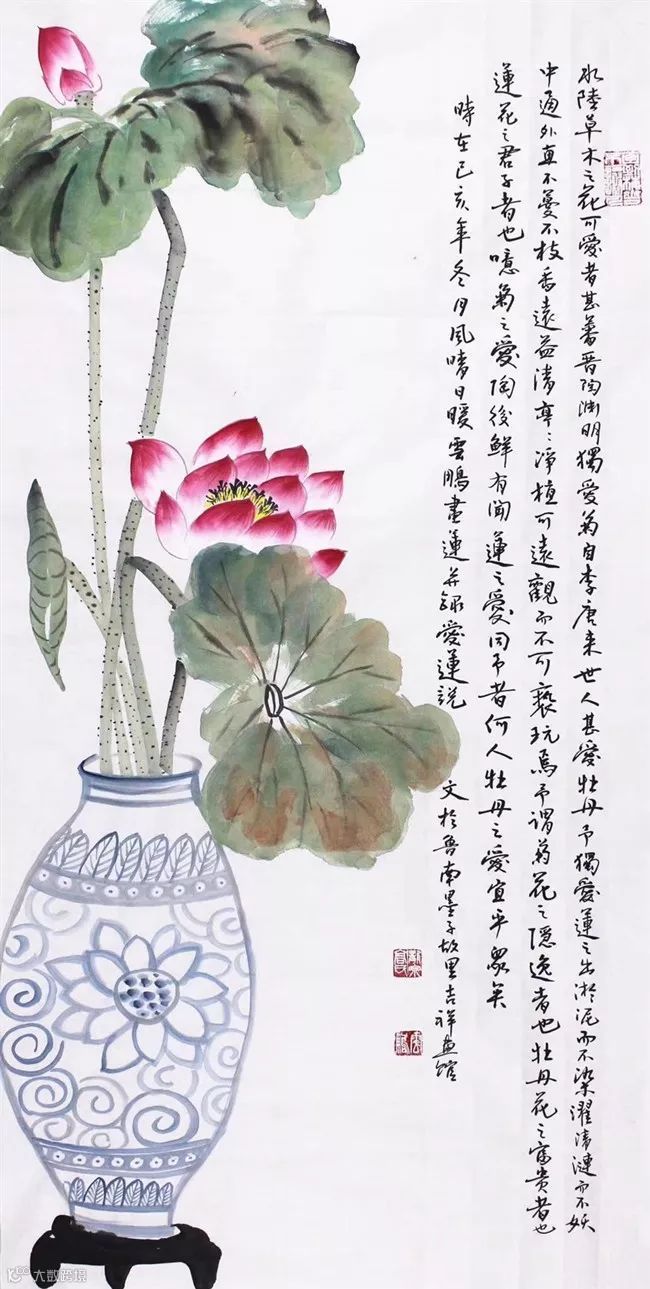 水陸草木之花可愛者甚蕃晉陶渊明獨愛菊自李唐来世人甚愛牡丹予獨愛蓮之出淤泥而不染濯清漣而不妖
中通外直不蔓不枝香遠益清亭〻凈植可遠觀而不可褻玩焉予謂菊花之隱逸者也牡丹花之富贵者也
蓮花之君子者也噫菊之愛陶後鮮有聞蓮之愛同予者何人牡丹之愛宜乎眾矣
時在己亥年冬月風晴日暖雲鵬畫蓮并録愛蓮説 文於魯南墨子故里吉祥画馆
大数跨境